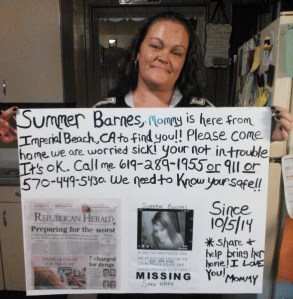 Summer Barnes, Mommy is here from
Imperial Beach, CA to find you!! Please come
home we are worried sick! your not in trouble
It's ok. Call me 619-289-1955 or 911 or
570-449-5430. We need to Know your safe!!
REPUBLICAN HERALD
Preparing for the worst
7 charged
for drugs
Summer Barnes
MISSING
Since
10/5/14
* share &
help bring her
home! I LOVE
You! MOMMY